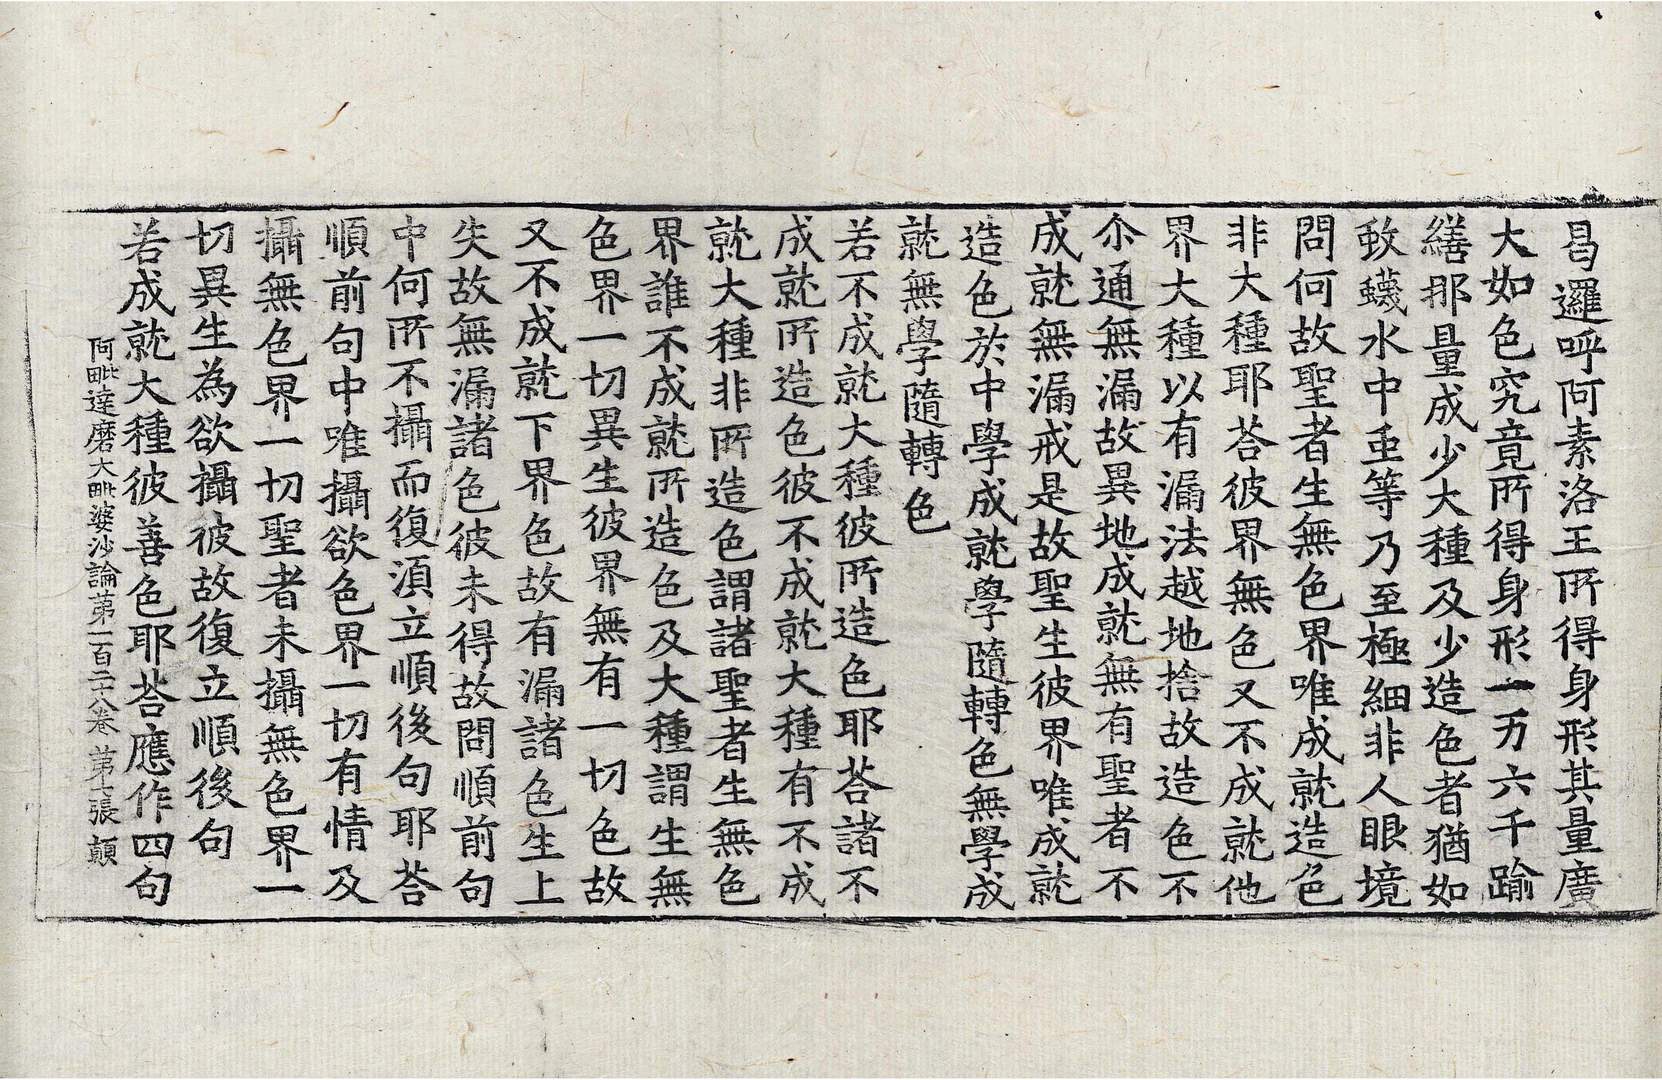 曷邏呼阿素洛王所得身形其量廣
大如色究竟所得身形一万六千踰
繕那量成少大種及少造色者猶如
蚊蠛水中虫等乃至極細非人眼境
問何故聖者生無色界唯成就造色
非大種耶荅彼界無色又不成就他
界大種以有漏法越地捨故造色不
尒通無漏故異地成就無有聖者不
成就無漏戒是故聖生彼界唯成就
造色於中學成就學隨轉色無學成
就無學隨轉色
若不成就大種彼所造色耶荅諸不
成就所造色彼不成就大種有不成
就大種非所造色謂諸聖者生無色
界誰不成就所造色及大種謂生無
色界一切異生彼界無有一切色故
又不成就下界色故有漏諸色生上
失故無漏諸色彼未得故問順前句
中何所不攝而復湏立順後句耶荅
順前句中唯攝欲色界一切有情及
攝無色界一切聖者未攝無色界一
切異生為欲攝彼故復立順後句
若成就大種彼善色耶荅應作四句
阿毗達磨大毗婆沙論苐一百三十八卷 苐七張 顛